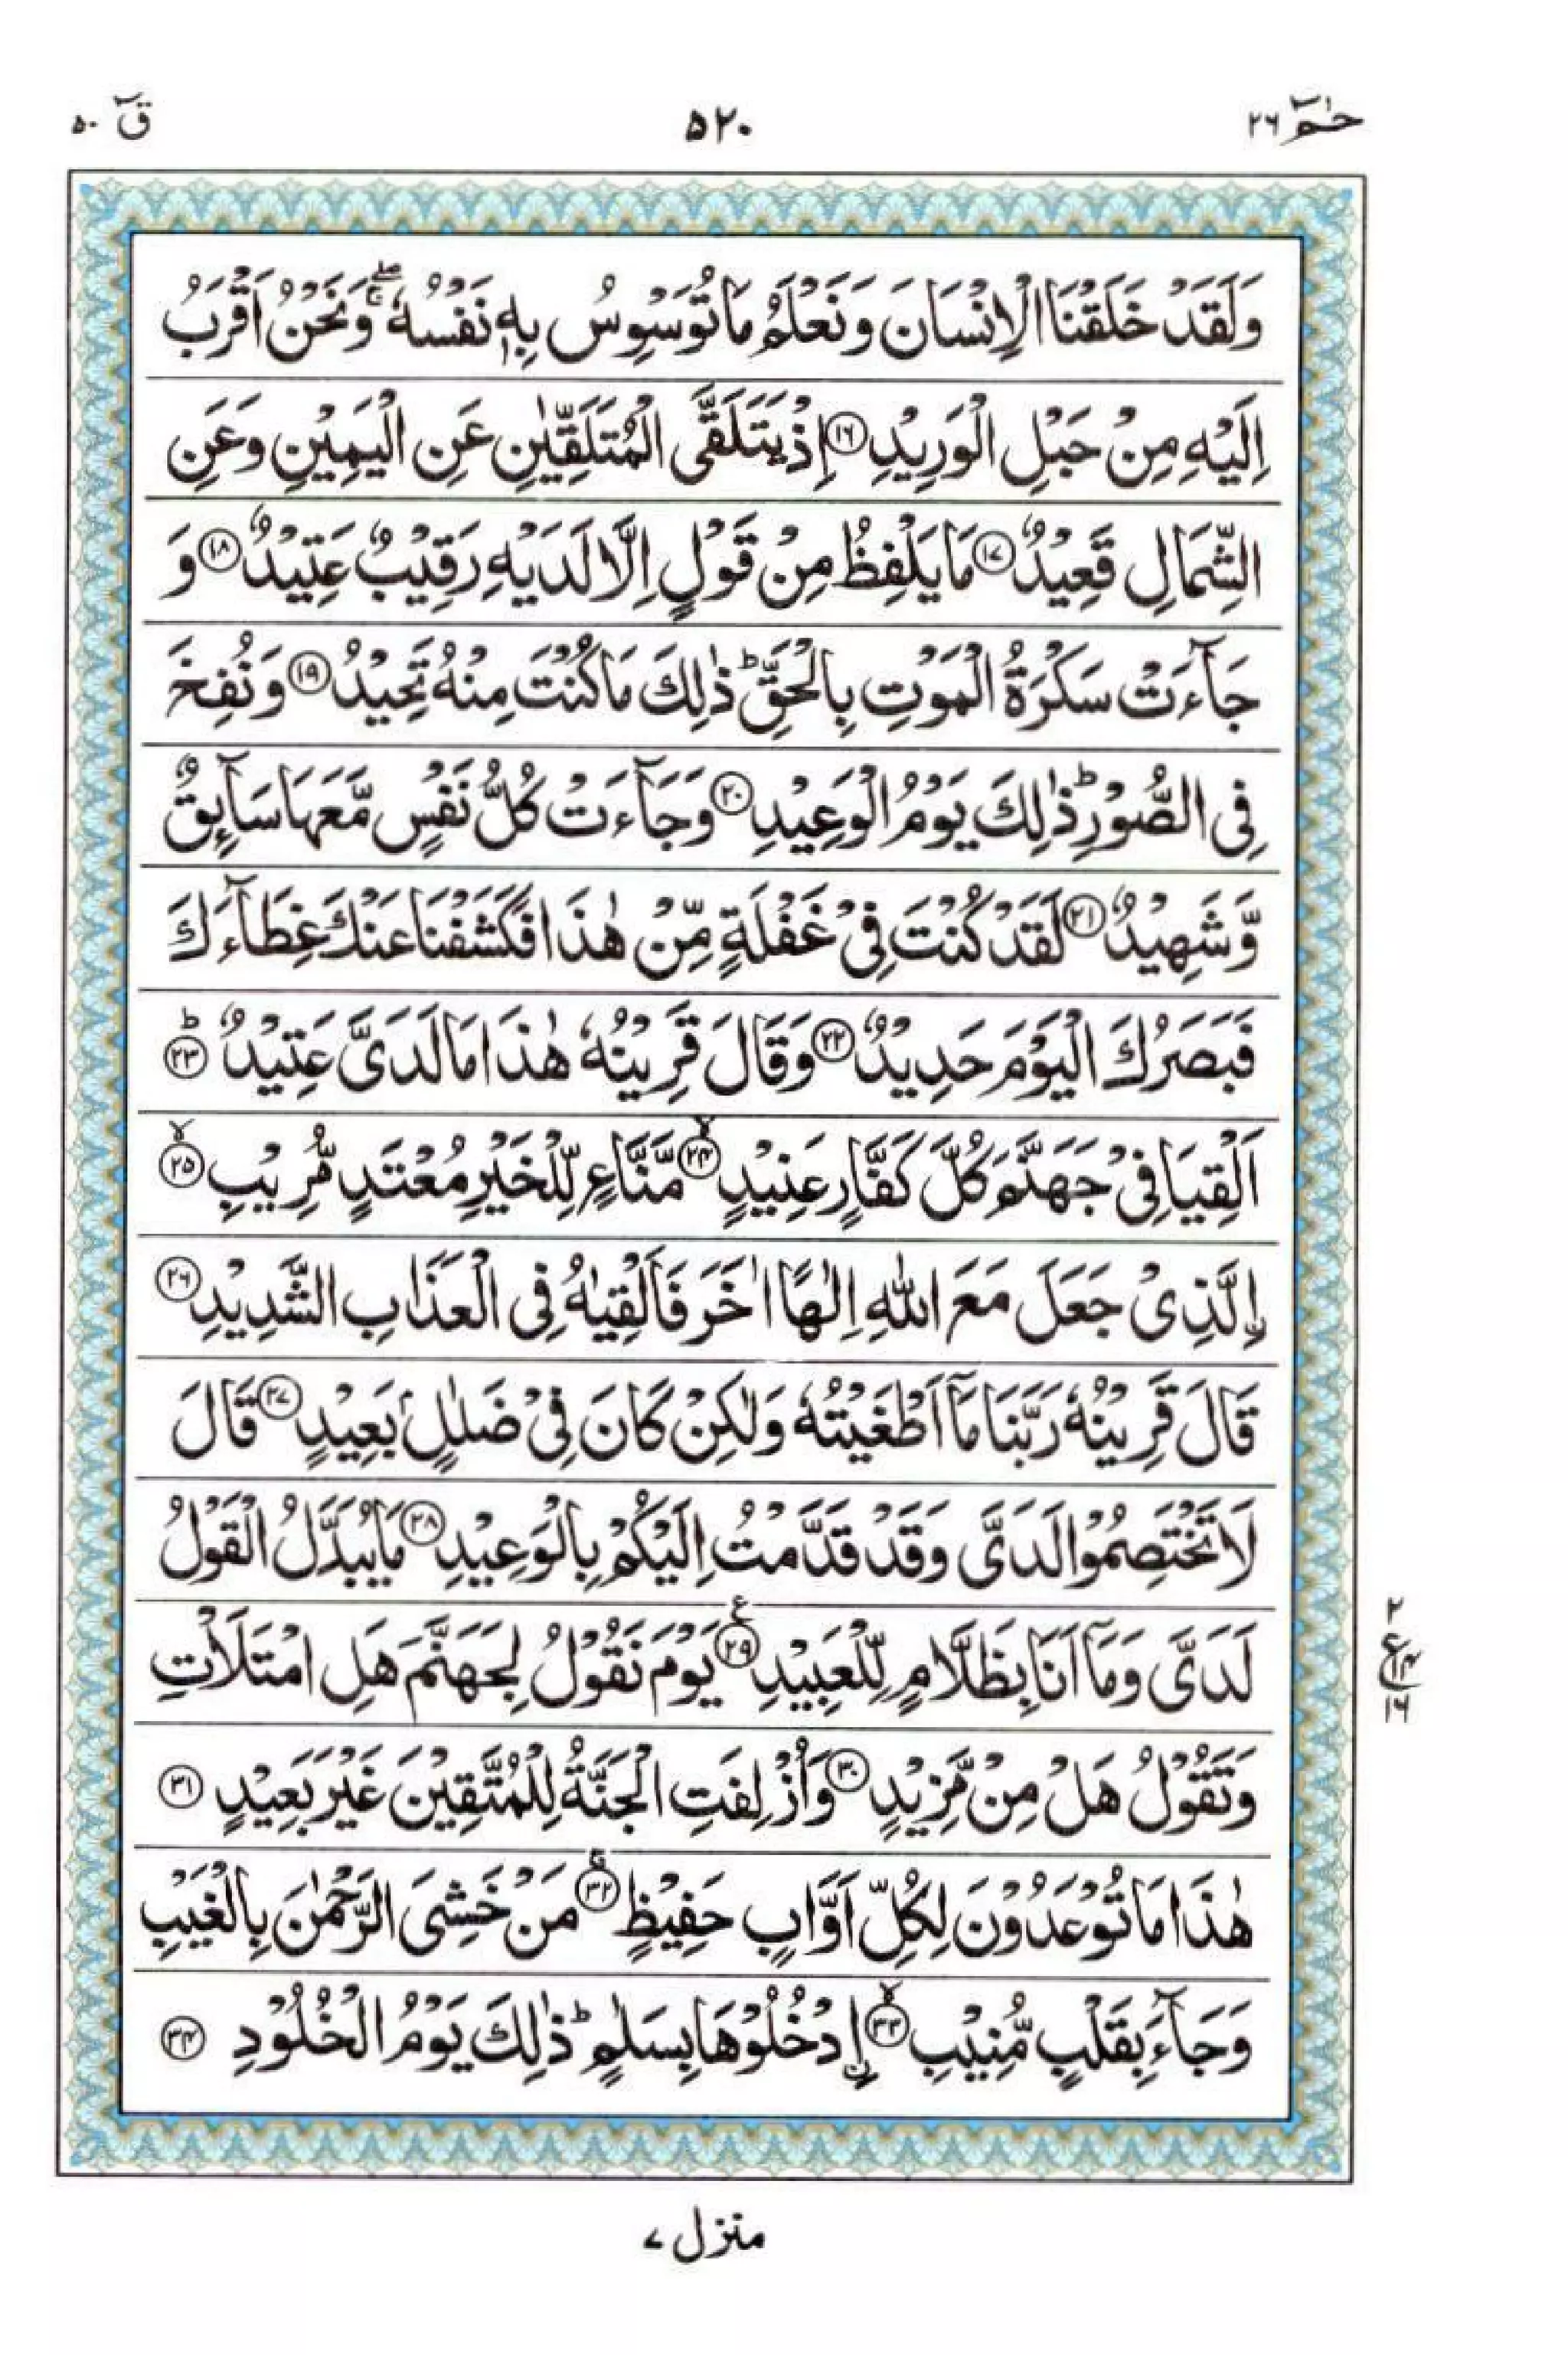 حٰمٓ ٢٦
٥٢٠
قٓ ٥٠
وَلَقَدْ خَلَقْنَا الْاِنْسَانَ وَنَعْلَمُ مَا تُوَسْوِسُ بِهٖ نَفْسُهٗ ۖۚ وَنَحْنُ اَقْرَبُ
اِلَيْهِ مِنْ حَبْلِ الْوَرِيْدِ ﴿١٦﴾ اِذْ يَتَلَقَّى الْمُتَلَقِّيٰنِ عَنِ الْيَمِيْنِ وَعَنِ
الشِّمَالِ قَعِيْدٌ ﴿١٧﴾ مَا يَلْفِظُ مِنْ قَوْلٍ اِلَّا لَدَيْهِ رَقِيْبٌ عَتِيْدٌ ﴿١٨﴾ وَ
جَآءَتْ سَكْرَةُ الْمَوْتِ بِالْحَقِّ ؕ ذٰلِكَ مَا كُنْتَ مِنْهُ تَحِيْدُ ﴿١٩﴾ وَنُفِخَ
فِى الصُّوْرِ ؕ ذٰلِكَ يَوْمُ الْوَعِيْدِ ﴿٢٠﴾ وَجَآءَتْ كُلُّ نَفْسٍ مَّعَهَا سَآىِٕقٌ
وَّشَهِيْدٌ ﴿٢١﴾ لَقَدْ كُنْتَ فِىْ غَفْلَةٍ مِّنْ هٰذَا فَكَشَفْنَا عَنْكَ غِطَآءَكَ
فَبَصَرُكَ الْيَوْمَ حَدِيْدٌ ﴿٢٢﴾ وَقَالَ قَرِيْنُهٗ هٰذَا مَا لَدَىَّ عَتِيْدٌ ؕ ﴿٢٣﴾
اَلْقِيَا فِىْ جَهَنَّمَ كُلَّ كَفَّارٍ عَنِيْدٍ ۙ ﴿٢٤﴾ مَّنَّاعٍ لِّلْخَيْرِ مُعْتَدٍ مُّرِيْبِ ۙ ﴿٢٥﴾
اِۨلَّذِىْ جَعَلَ مَعَ اللّٰهِ اِلٰهًا اٰخَرَ فَاَلْقِيٰهُ فِى الْعَذَابِ الشَّدِيْدِ ﴿٢٦﴾
قَالَ قَرِيْنُهٗ رَبَّنَا مَاۤ اَطْغَيْتُهٗ وَلٰكِنْ كَانَ فِىْ ضَلٰلٍۭ بَعِيْدٍ ﴿٢٧﴾ قَالَ
لَا تَخْتَصِمُوْا لَدَىَّ وَقَدْ قَدَّمْتُ اِلَيْكُمْ بِالْوَعِيْدِ ﴿٢٨﴾ مَا يُبَدَّلُ الْقَوْلُ
لَدَىَّ وَمَاۤ اَنَا بِظَلَّامٍ لِّلْعَبِيْدِ ﴿٢٩﴾ ع يَوْمَ نَقُوْلُ لِجَهَنَّمَ هَلِ امْتَلَاْتِ
وَتَقُوْلُ هَلْ مِنْ مَّزِيْدٍ ﴿٣٠﴾ وَاُزْلِفَتِ الْجَنَّةُ لِلْمُتَّقِيْنَ غَيْرَ بَعِيْدٍ ﴿٣١﴾
هٰذَا مَا تُوْعَدُوْنَ لِكُلِّ اَوَّابٍ حَفِيْظٍ ۚ ﴿٣٢﴾ مَنْ خَشِىَ الرَّحْمٰنَ بِالْغَيْبِ
وَجَآءَ بِقَلْبٍ مُّنِيْبِ ۙ ﴿٣٣﴾ اِۨدْخُلُوْهَا بِسَلٰمٍ ؕ ذٰلِكَ يَوْمُ الْخُلُوْدِ ﴿٣٤﴾
٢
ع ١٤
١٦
منزل ٧